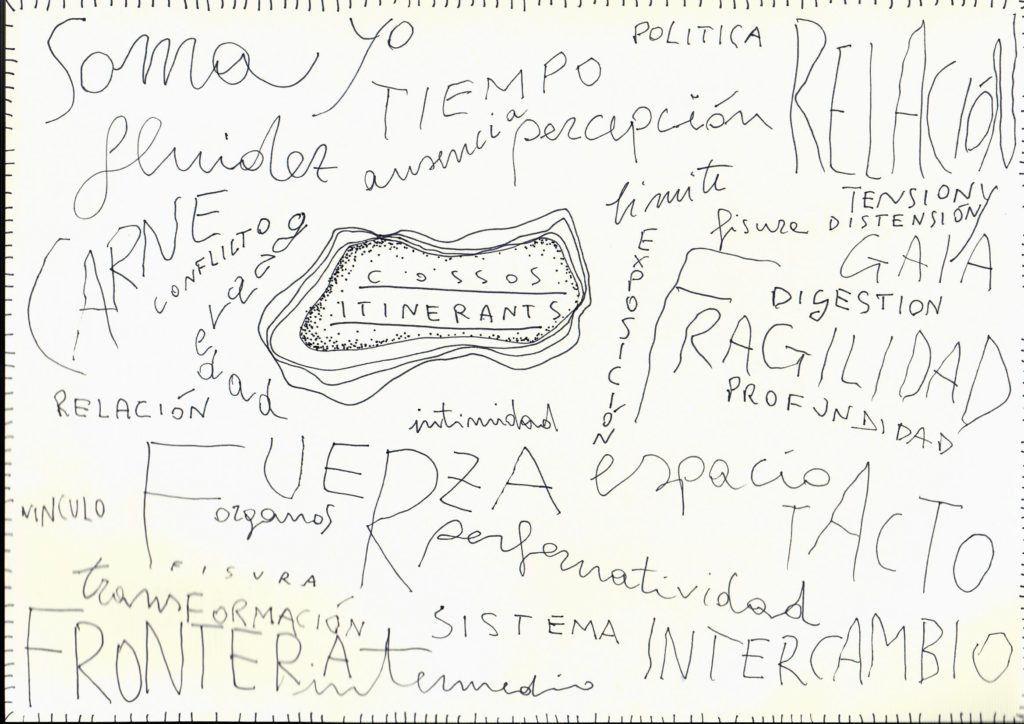 Soma
YO
POLITICA
RELACIÓN
TIEMPO
fluidez
ausencia
percepción
límite
TENSION Y
DISTENSIÓN
fisura
CARNE
CONFLICTO
gravedad
COSSOS
ITINERANTS
EXPOSICIÓN
GAIA
DIGESTION
FRAGILIDAD
PROFUNDIDAD
RELACIÓN
intimidad
FUERZA
espacio
TACTO
VINCULO
organos
performatividad
FISURA
transFORMACIÓN
SISTEMA
INTERCAMBIO
FRONTERA
intermedio